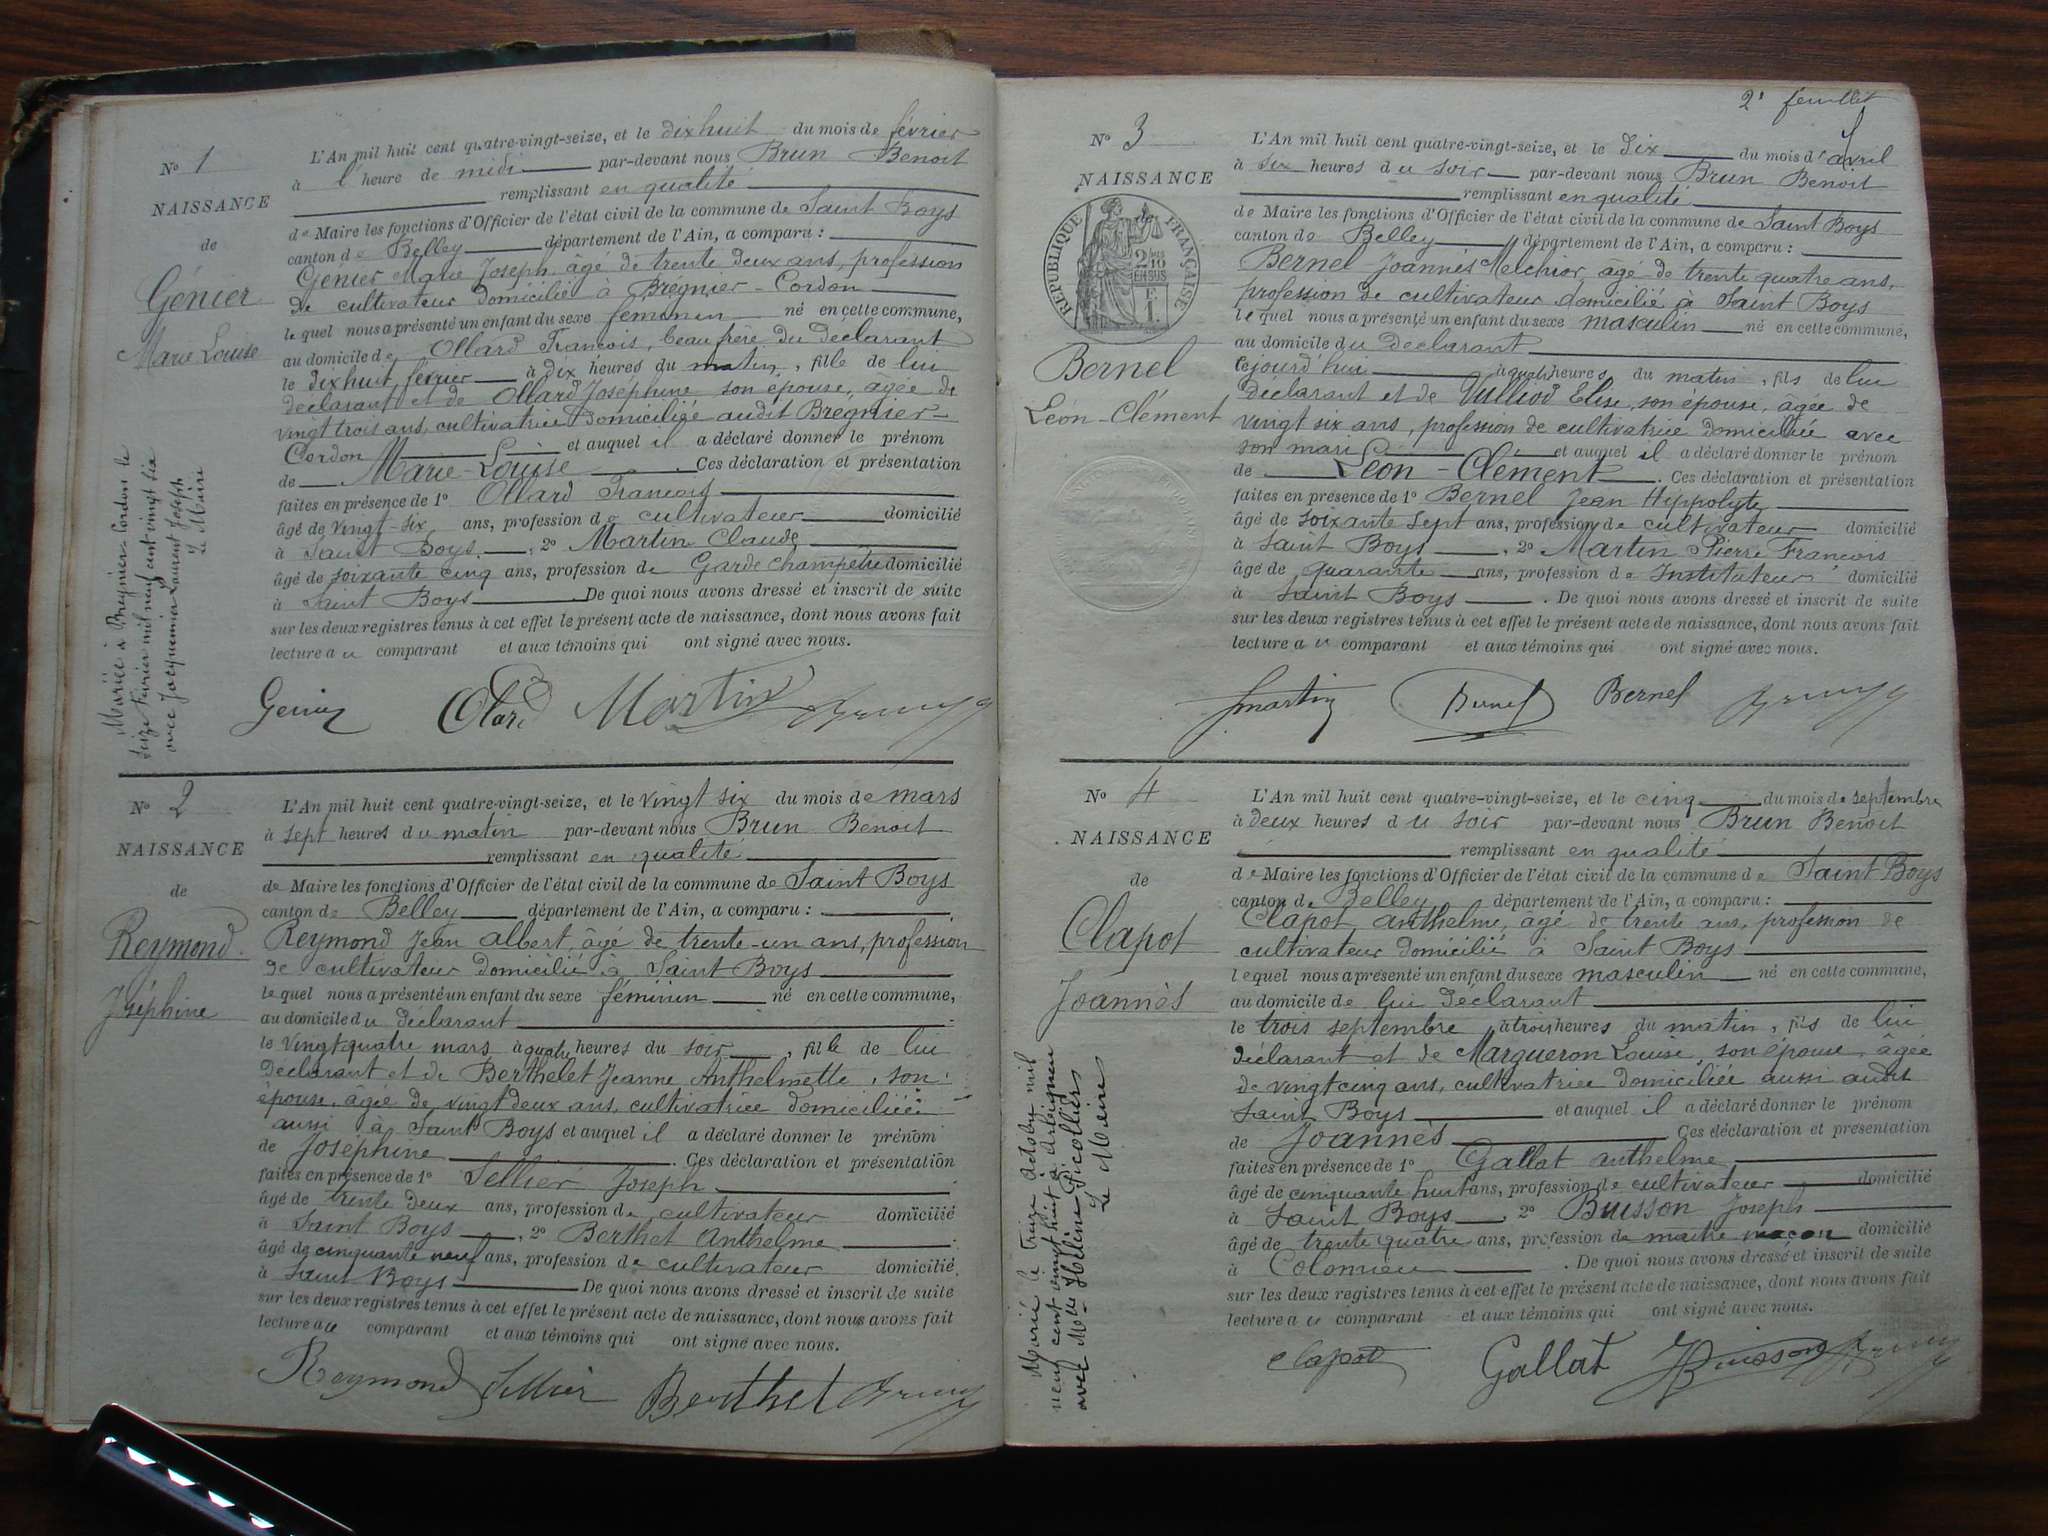 No 1
NAISSANCE
de
Génier
Marie Louise
Mariée à Bregnier-Cordon le
seize février mil neuf cent vingt six
avec Jacquemier Laurent Joseph
Le Maire
L'An mil huit cent quatre-vingt-seize, et le dix huit du mois de février
à l'heure de midi par-devant nous Brun Benoit
remplissant en qualité
de Maire les fonctions d'Officier de l'état civil de la commune de Saint Boys
canton de Belley département de l'Ain, a comparu :
Génier Marie Joseph, âgé de trente deux ans, profession
de cultivateur domicilié à Bregnier-Cordon
lequel nous a présenté un enfant du sexe féminin né en cette commune,
au domicile de Ollard François, beau père du déclarant
le dix huit février à dix heures du matin, fille de lui
déclarant et de Ollard Joséphine son épouse, âgée de
vingt trois ans, cultivatrice domiciliée audit Bregnier-
Cordon et auquel il a déclaré donner le prénom
de Marie-Louise. Ces déclaration et présentation
faites en présence de 1o Ollard François
âgé de vingt-six ans, profession de cultivateur domicilié
à Saint Boys, 2o Martin Claude
âgé de soixante cinq ans, profession de Garde champêtre domicilié
à Saint Boys. De quoi nous avons dressé et inscrit de suite
sur les deux registres tenus à cet effet le présent acte de naissance, dont nous avons fait
lecture au comparant et aux témoins qui ont signé avec nous.
Genier Olard Martin Brun
No 2
NAISSANCE
de
Reymond
Joséphine
L'An mil huit cent quatre-vingt-seize, et le vingt six du mois de mars
à sept heures du matin par-devant nous Brun Benoit
remplissant en qualité
de Maire les fonctions d'Officier de l'état civil de la commune de Saint Boys
canton de Belley département de l'Ain, a comparu :
Reymond Jean Albert, âgé de trente-un ans, profession
de cultivateur domicilié à Saint Boys
lequel nous a présenté un enfant du sexe féminin né en cette commune,
au domicile du déclarant
le vingt quatre mars à quatre heures du soir, fille de lui
déclarant et de Berthelet Jeanne Anthelmette, son
épouse, âgée de vingt deux ans, cultivatrice domiciliée
aussi à Saint Boys et auquel il a déclaré donner le prénom
de Joséphine. Ces déclaration et présentation
faites en présence de 1o Sellier Joseph
âgé de trente deux ans, profession de cultivateur domicilié
à Saint Boys, 2o Berthet Anthelme
âgé de cinquante neuf ans, profession de cultivateur domicilié
à Saint Boys De quoi nous avons dressé et inscrit de suite
sur les deux registres tenus à cet effet le présent acte de naissance, dont nous avons fait
lecture au comparant et aux témoins qui ont signé avec nous.
Reymond Sellier Berthet Brun
2e feuillet
No 3
NAISSANCE
RÉPUBLIQUE FRANÇAISE
2/10 EN SUS
1 F.
Bernel
Léon-Clément
L'An mil huit cent quatre-vingt-seize, et le dix du mois d'avril
à six heures du soir par-devant nous Brun Benoit
remplissant en qualité
de Maire les fonctions d'Officier de l'état civil de la commune de Saint Boys
canton de Belley département de l'Ain, a comparu :
Bernel Joannès Melchior, âgé de trente quatre ans,
profession de cultivateur domicilié à Saint Boys
lequel nous a présenté un enfant du sexe masculin né en cette commune,
au domicile du déclarant
cejourd'hui à quatre heures du matin, fils de lui
déclarant et de Vulliod Elise, son épouse, âgée de
vingt six ans, profession de cultivatrice domiciliée avec
son mari et auquel il a déclaré donner le prénom
de Léon-Clément. Ces déclaration et présentation
faites en présence de 1o Bernel Jean Hyppolyte
âgé de soixante sept ans, profession de cultivateur domicilié
à Saint Boys, 2o Martin Pierre François
âgé de quarante ans, profession de Instituteur domicilié
à Saint Boys. De quoi nous avons dressé et inscrit de suite
sur les deux registres tenus à cet effet le présent acte de naissance, dont nous avons fait
lecture au comparant et aux témoins qui ont signé avec nous.
Martin Bernel Bernel Brun
No 4
NAISSANCE
de
Clapot
Joannès
Marié le treize octobre mil
neuf cent vingt huit à Arbignieu
avec Melle Hélène Picollier
Le Maire
L'An mil huit cent quatre-vingt-seize, et le cinq du mois de septembre
à deux heures du soir par-devant nous Brun Benoit
remplissant en qualité
de Maire les fonctions d'Officier de l'état civil de la commune de Saint Boys
canton de Belley département de l'Ain, a comparu :
Clapot Anthelme, âgé de trente ans, profession de
cultivateur domicilié à Saint Boys
lequel nous a présenté un enfant du sexe masculin né en cette commune,
au domicile de lui déclarant
le trois septembre à trois heures du matin, fils de lui
déclarant et de Margueron Louise, son épouse, âgée
de vingt cinq ans, cultivatrice domiciliée aussi audit
Saint Boys et auquel il a déclaré donner le prénom
de Joannès Ces déclaration et présentation
faites en présence de 1o Gallat Anthelme
âgé de cinquante huit ans, profession de cultivateur domicilié
à Saint Boys, 2o Buisson Joseph
âgé de trente quatre ans, profession de maître maçon domicilié
à Colomieu. De quoi nous avons dressé et inscrit de suite
sur les deux registres tenus à cet effet le présent acte de naissance, dont nous avons fait
lecture au comparant et aux témoins qui ont signé avec nous.
Clapot Gallat JBuisson Brun